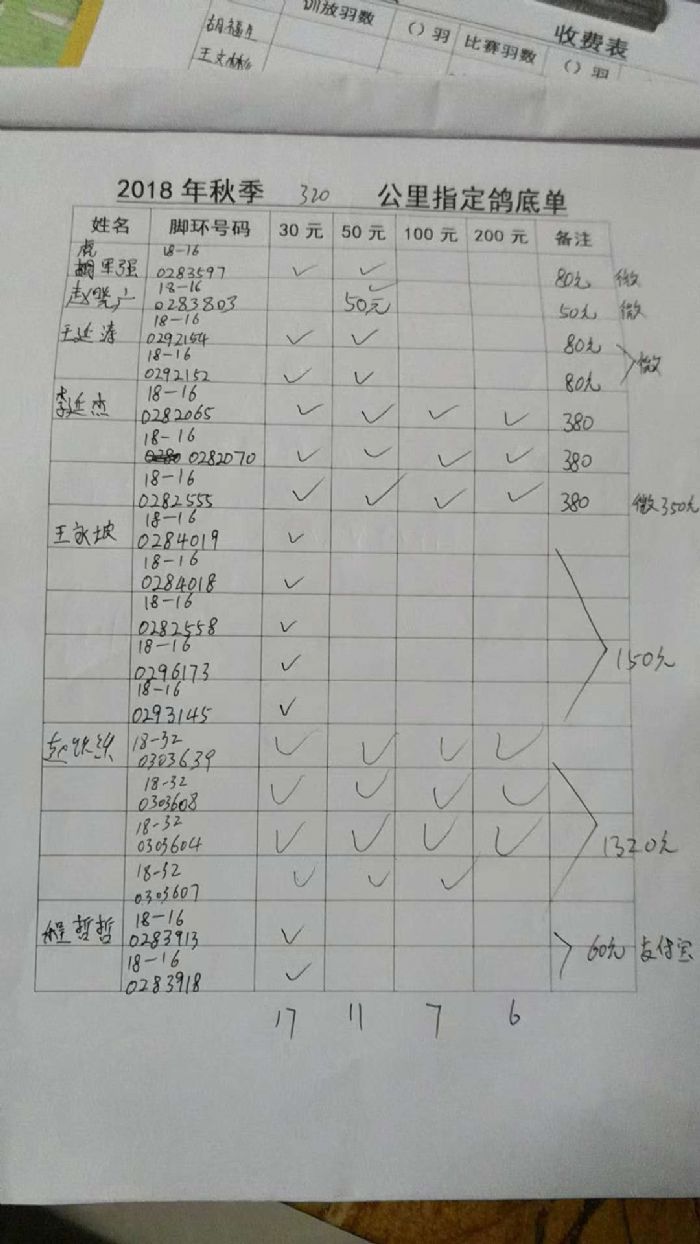 训放羽数 ( ) 羽 比赛羽数 收费表
胡福生 ( ) 羽
王文彬
2018年秋季 320 公里指定鸽底单
姓名 脚环号码 30元 50元 100元 200元 备注
虎 18-16
胡军强 0283597 ✓ ✓ 80元 微
赵晓广 18-16 ✓
0283803 50元 50元 微
王延涛 18-16
0292154 ✓ ✓ 80元
18-16 微
0292152 ✓ ✓ 80元
李廷杰 18-16
0282065 ✓ ✓ ✓ ✓ 380
18-16
0282070 ✓ ✓ ✓ ✓ 380
18-16
0282555 ✓ ✓ ✓ ✓ 380 微350元
王永坡 18-16
0284019 ✓
18-16
0284018 ✓
18-16
0282558 ✓
18-16 150元
0296173 ✓
18-16
0293145 ✓
18-32
0303639 ✓ ✓ ✓ ✓
18-32
0303608 ✓ ✓ ✓ ✓
18-32
0303604 ✓ ✓ ✓ ✓ 1320元
18-32
0303607 ✓ ✓ ✓
程哲哲 18-16
0283913 ✓ 60元 支付宝
18-16
0283918 ✓
17 11 7 6